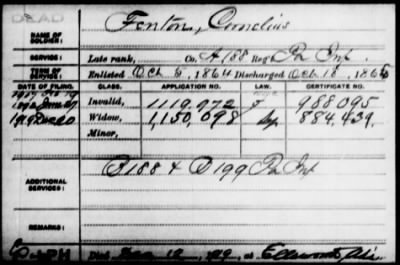 DEAD
NAME OF SOLDIER: Fenton, Cornelius
SERVICE: Late rank, Co. A 188 Reg't Pa Inf
TERM OF SERVICE: Enlisted Oct 5, 1864 Discharged Oct 18, 1865
DATE OF FILING. CLASS. APPLICATION NO. LAW. CERTIFICATE NO.
Invalid, 1119,972 988095
Widow, 1,150,098 884,439.
Minor,
ADDITIONAL SERVICES: B188 & D199 Pa Inf
REMARKS:
Died 12, at Ellsworth,